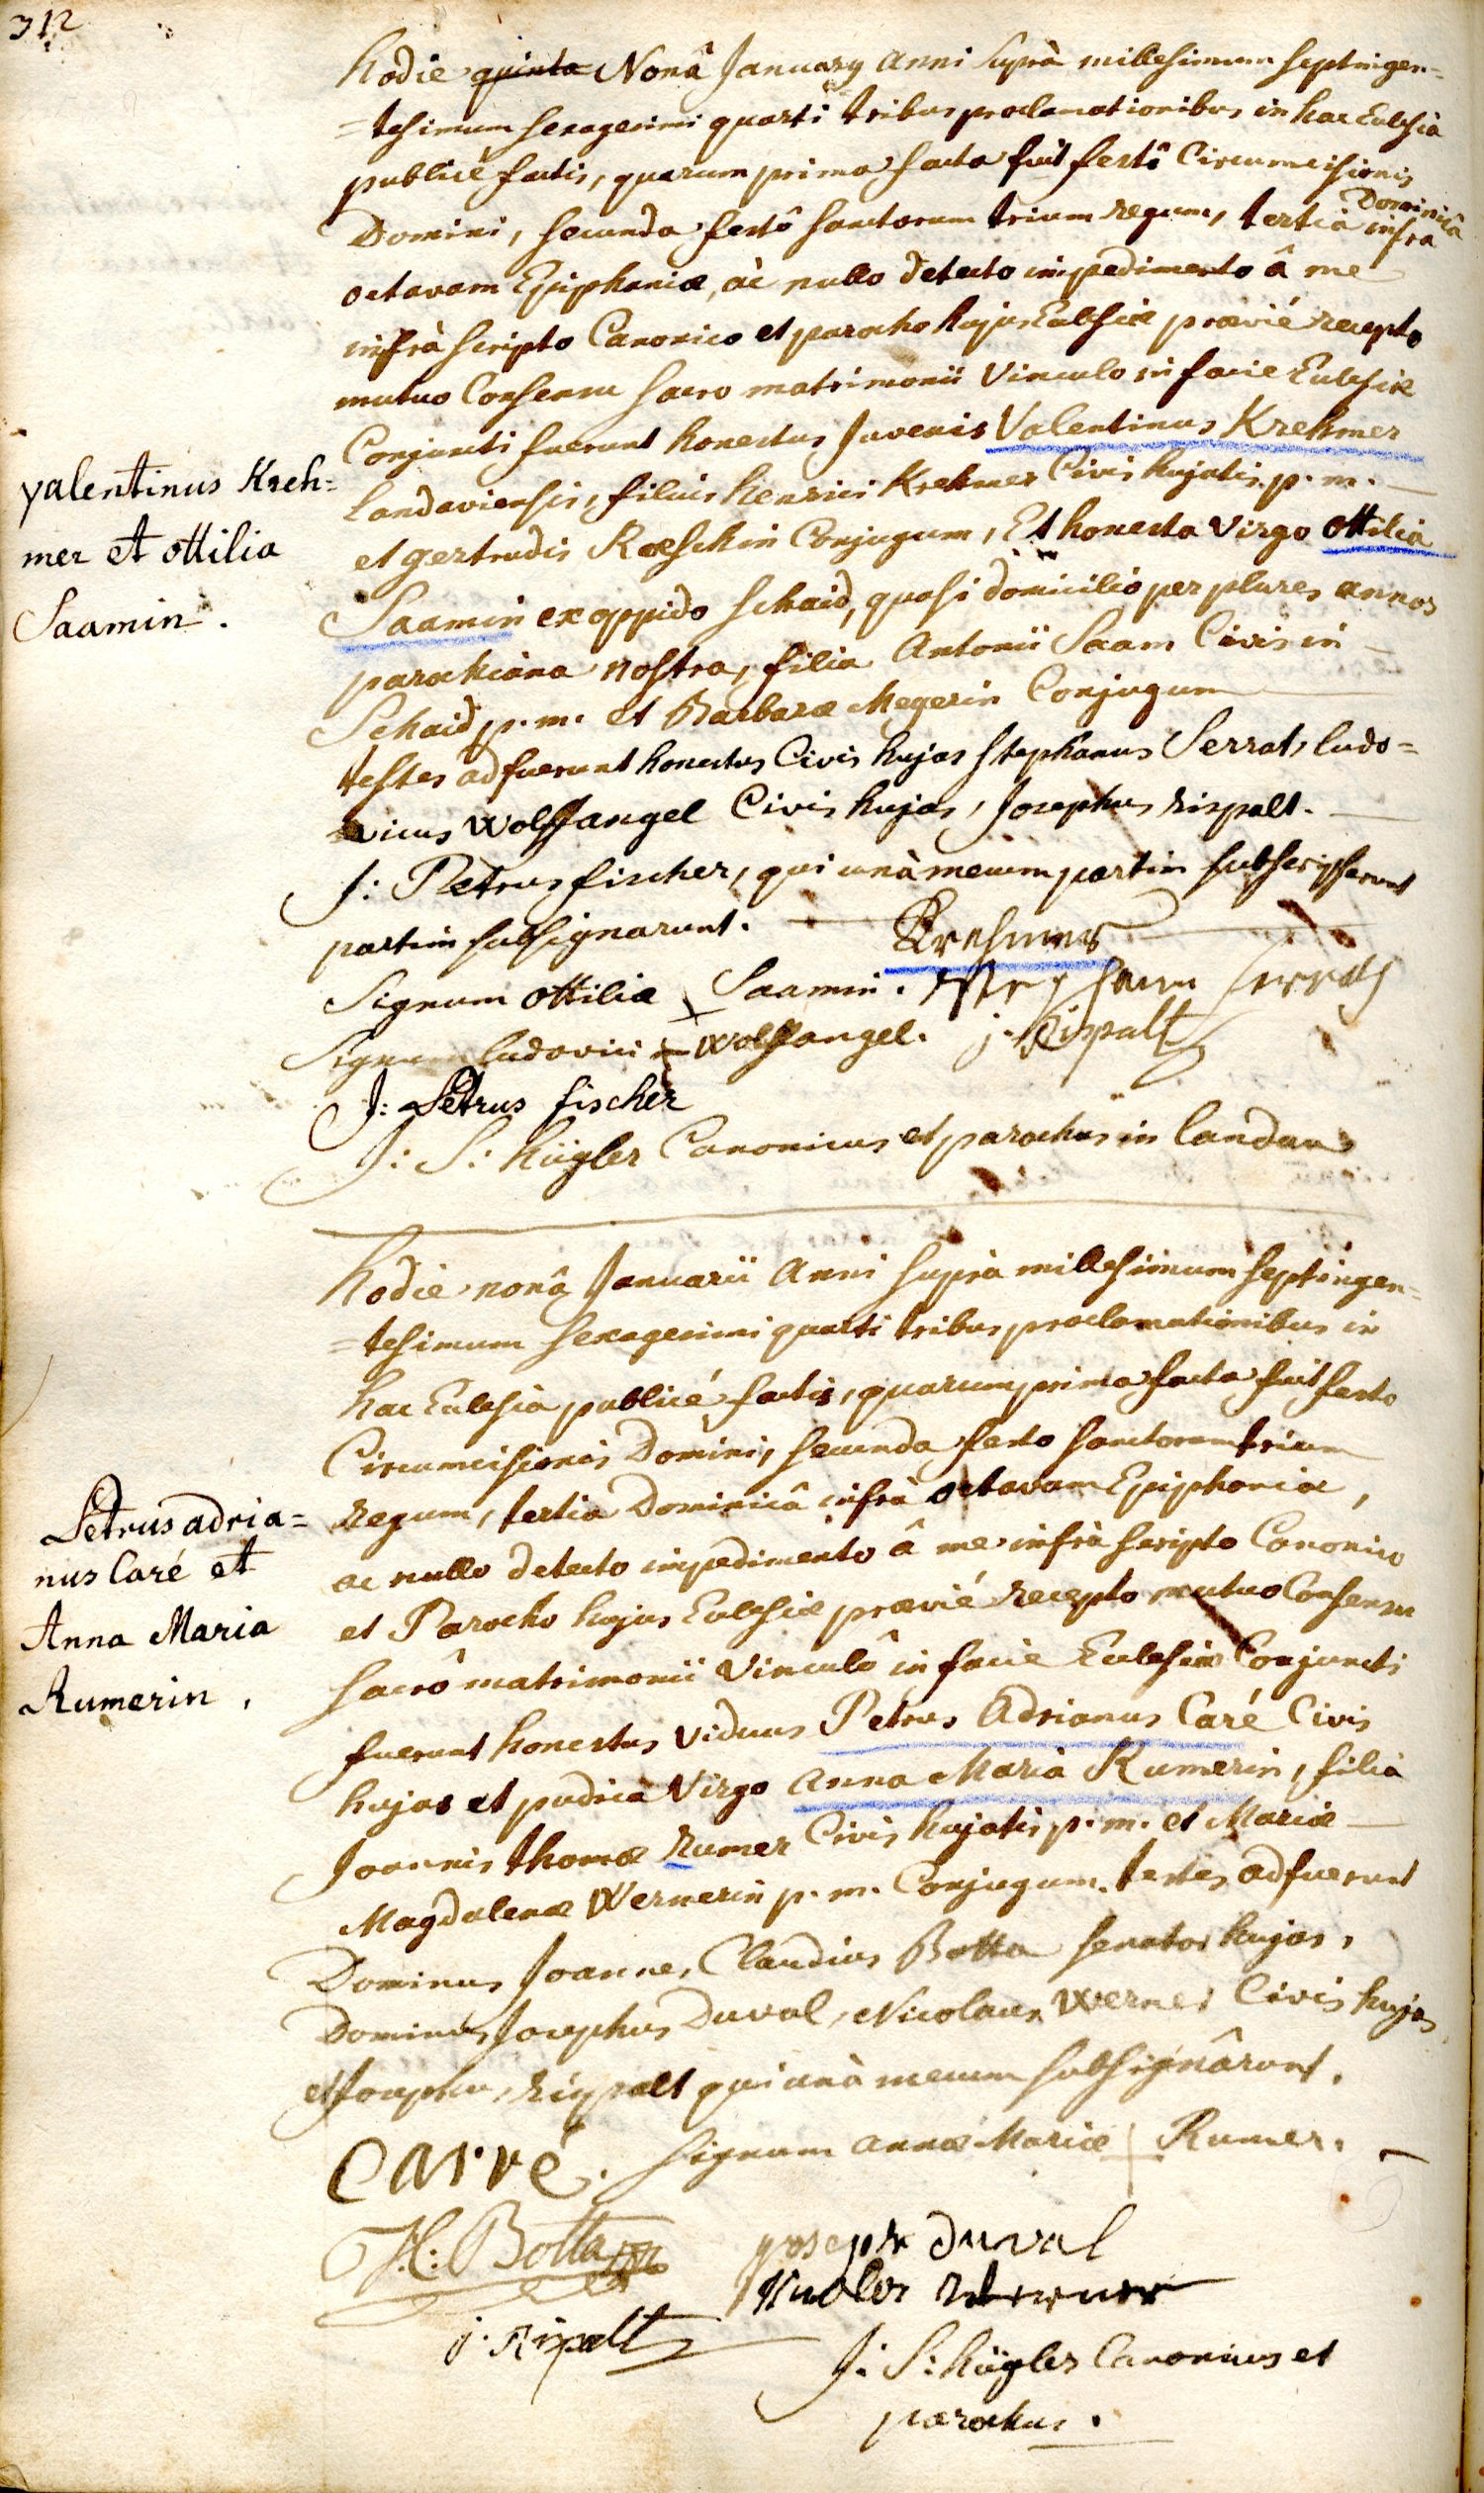 312
Hodie quinta Nonâ January anni suprà millesimum septingen=
=tesimum sexagesimi quarti tribus proclamationibus in hac Eclesiâ
publicè factis, quarum prima facta fuit festô Circumcisionis
Domini, secunda festô sanctorum trium regum, tertia Dominicâ infra
octavam Epiphaniæ, àc nullo detecto impedimento â me
infrà scripto Canonico et parocho hujus Eclesiæ prævié recepto
mutuo Consensu sacro matrimonii Vinculo in facie Eclesiæ
Conjuncti fuerunt honestus Juvenis Valentinus Krehmer
Landaviensis, filius Henrici Krehmer Civis hujatis p. m.
et gertrudis Roeschin Conjugum, Et honesta Virgo Ottilia
Saamin ex oppido Schaid, quasi domicilio per plures annos
parochiana nostra, filia Antonii Saam Civis in
Schaid p. m. et Barbaræ Megerin Conjugum
testes adfuerunt honestus Civis hujas Stephanus Serrat, ludo=
vicus Wolffangel Civis hujas, Josephus rispalt.
J: Petrus fischer, qui unà mecum partim subscripserunt
partim subsignarunt. Krehmer
Signum Ottiliæ + Saamin. Stephann Serrat
Signum ludovici + Wolffangel. j. Rispalt
J: Petrus fischer
J: S: Hügler Canonicus et parochus in Landau
Valentinus Kreh=
mer et ottilia
Saamin.
Hodie nonâ Januarii Anni suprà millesimum septingen=
=tesimum sexagesimi quarti tribus proclamationibus in
hac Eclesiâ publicé factis, quarum prima facta fuit festo
Circumcisionis Domini, secunda festo sanctorum trium
regum, tertia Dominicâ infrà octavam Epiphaniæ,
ac nullo detecto impedimento â me infrà scripto Canonico
et Parocho hujus Eclesiæ prævié recepto mutuo Consensu
sacrô matrimonii Vinculô in facie Eclesiæ Conjuncti
fuerunt honestus Viduus Petrus Adrianus Caré Civis
hujas et pudica Virgo Anna Maria Rumerin, filia
Joannis thomæ Rumer Civis hujatis p. m. et Mariæ
Magdalenæ Wernerin p. m. Conjugum. testes adfuerunt
Dominus Joannes Claudius Botta senator hujas,
Dominus Josephus Duval, Nicolaus Werner Civis hujas
et Josephus rispalt qui unà mecum subsignârunt.
Carré. Signum annæ Mariæ + Rumer.
J.C: Botta
Joseph Duval
Nicolas Werner
j. Rispalt
J: S: Hügler Canonicus et
parochus.
Petrus adria=
nus Caré et
Anna Maria
Rumerin.